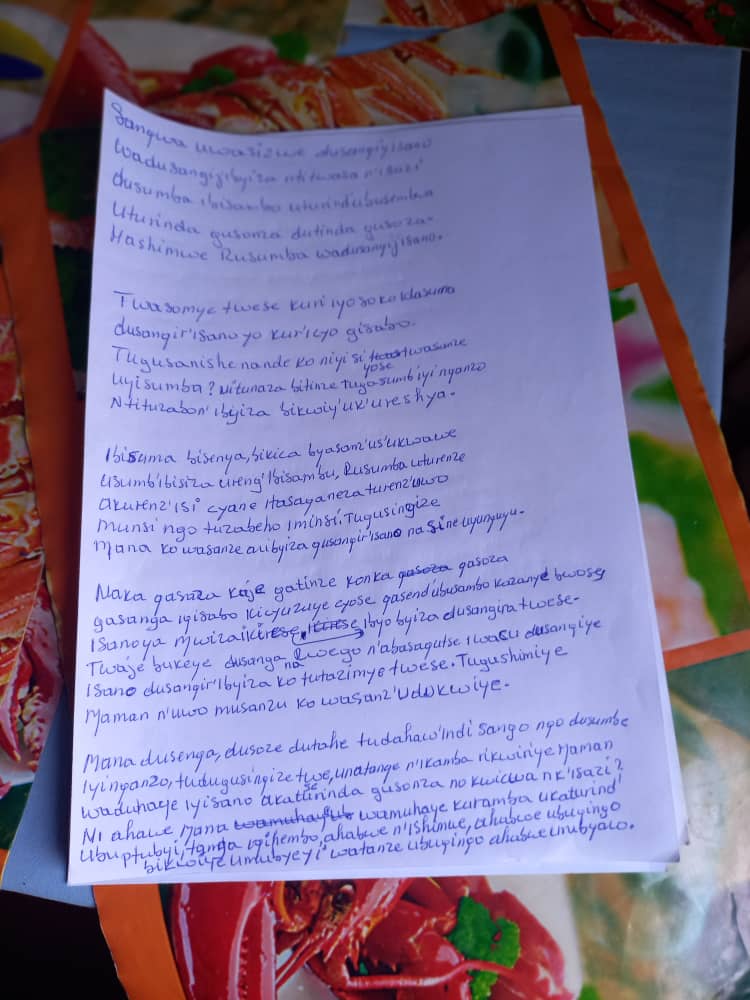 Sangwa uwasizwe dusangiyisano
wadusangizibyiza ntitwasa n'isazi
dusumba ibisambo uturind'ubusemba
Uturinda gusonza dutinda gusoza-
Hashimwe Rusumba wadusangij'isano.
Twasomye twese kur'iyo soko idasuma
dusangir'isano yo kur'icyo gisabo.
Tugusanishe nande ko niyi si yose twasanze
uyisumba? nitunaza bitinze Tugasumb'iyi nganzo
Ntituzabon'ibyiza bikwiy'uk'ureshya.
Ibisuma bisenya, bikica byasanz'us'ukwawe
usumb'ibisiza ureng'ibisambu, Rusumba uturenze
akurenz'isi cyane itasayaneza turenz'uwo
munsi ngo tuzabeho iminsi. Tugusingize
Mana ko wasanze ari byiza gusangir'isano na Sine uyunguyu.
Naka gasaza kaje gatinze konka gasoza
gasanga igisabo kicyuzuye cyose gasend'ubusambo kazanye bwose
Isano ya Mwiza ibyo byiza dusangira twese-
Twaje bukeye dusanga na Rwego n'abasagutse iwacu dusangiye
isano dusangir'ibyiza ko tutazimye twese. Tugushimiye
Maman n'uwo musanzu ko wasanz'udukwiye.
Mana dusenga, dusoze dutahe tudahaw'indi sango ngo dusumbe
Iyinganzo, tudugusingize twe, unatange n'ikamba rikwiriye Maman
waduhaye iyisano akaturinda gusonza no kwicwa nk'isazi?
Ni ahawe Mana wamuhaye kuramba ukaturind'
tanga igihembo, ahabwe n'ishimwe, ahabwe ubugingo
bikwiye umubyeyi watanze ubugingo ahabwe urubyaro.